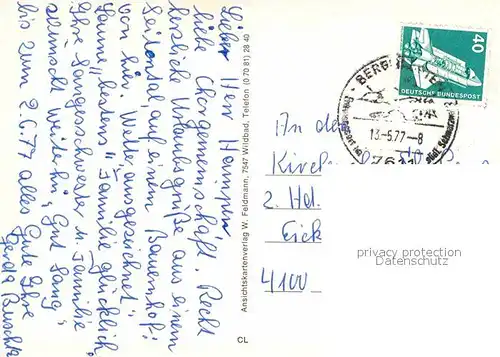 Lieber Herr Hannipen
liebe Chorgemeinschaft. Recht
herzliche Urlaubsgrüße aus einem
Seitental, auf einem Bauernhof!
von hier. Wetter, ausgezeichnet",
Laune" bestens" Familie glücklich.
Ihre Sangesschwester u. Familie
wünscht weiterhin, Gut Sang"
bis zum 2.6.77 alles Gute Ihre
Gerda
Ansichtskartenverlag W. Feldmann, 7547 Wildbad, Telefon (0 70 81) 28 40
CL
40
DEUTSCHE BUNDESPOST
13.-5.77.-8
An den
Kirch
2. Hd.
Eick
4100
privacy protection
Datenschutz